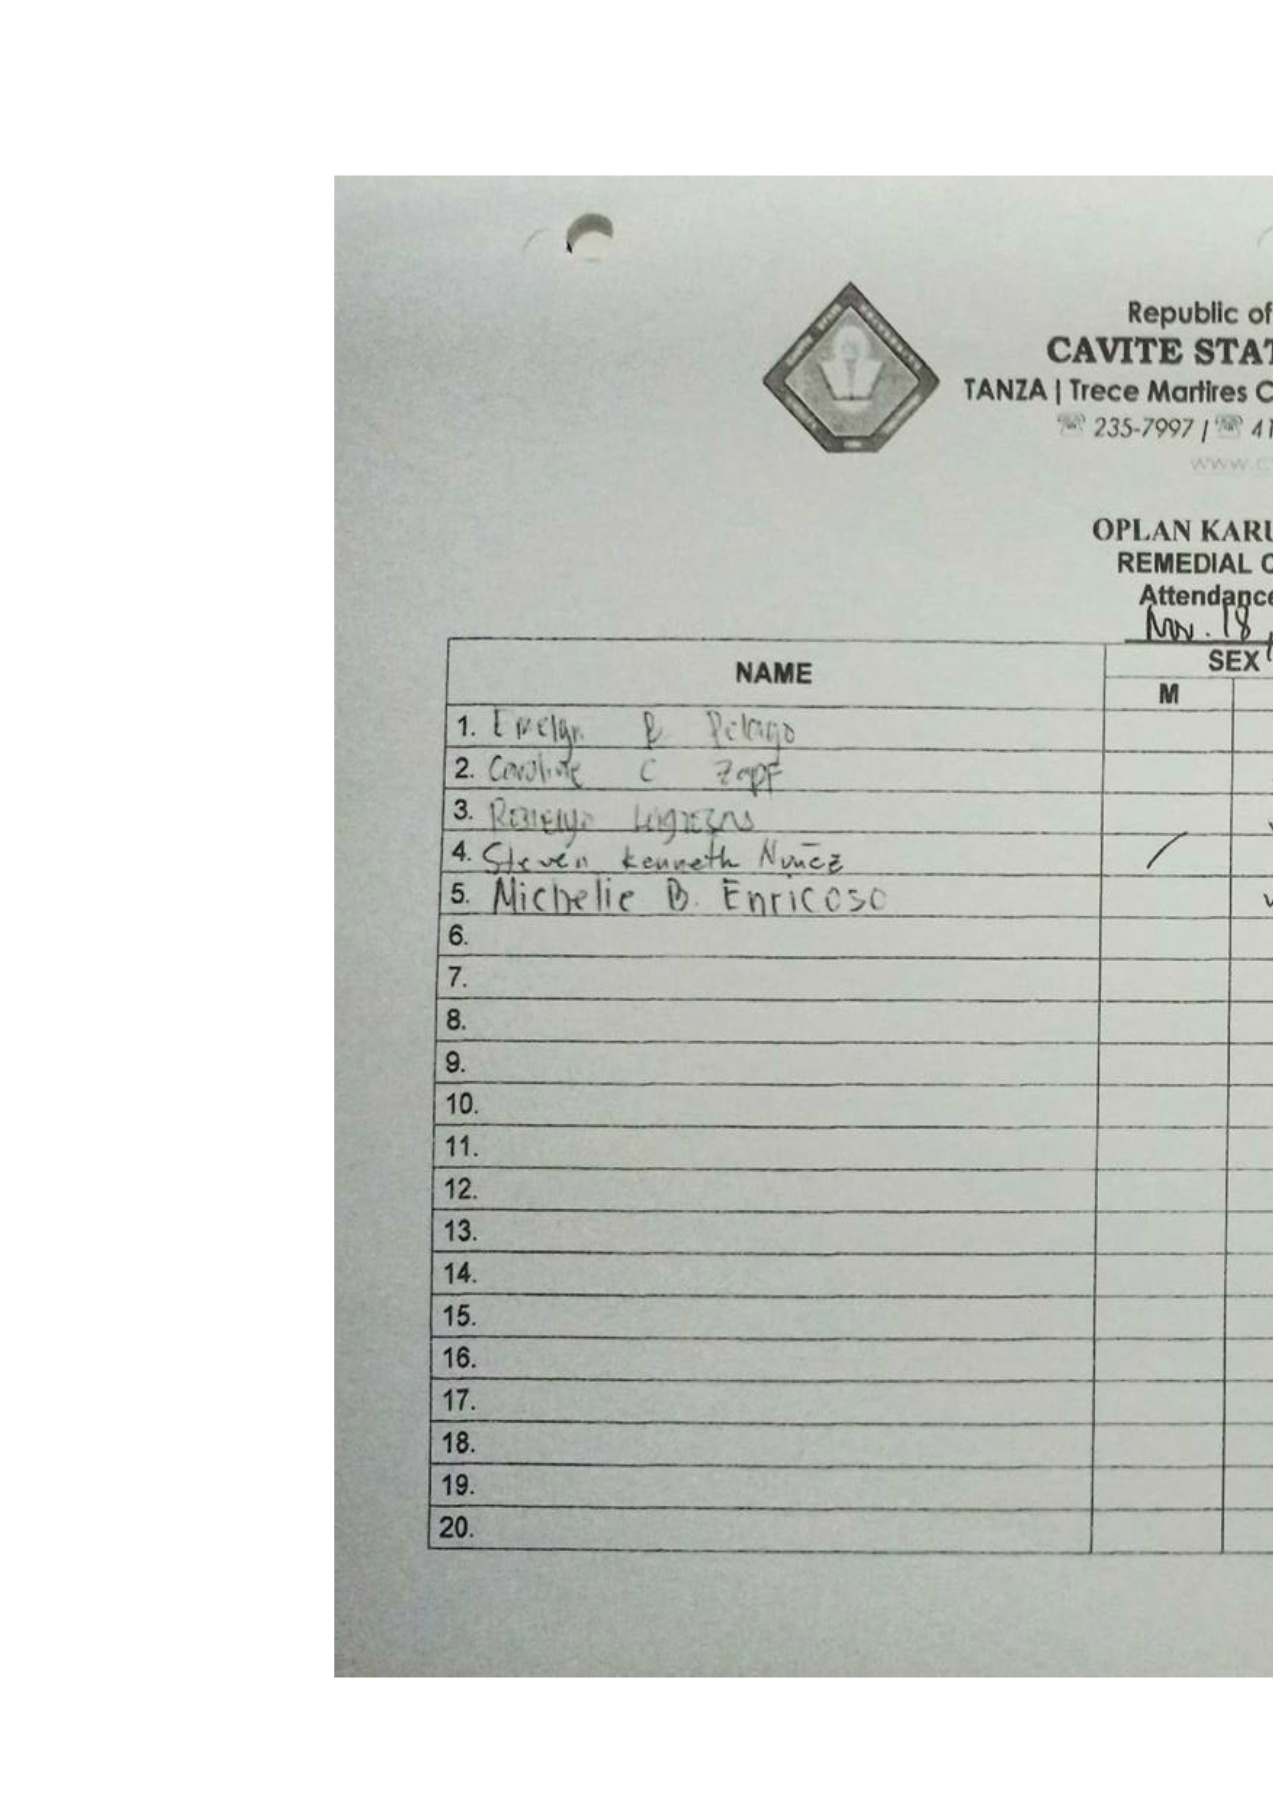 Republic of
CAVITE STAT
TANZA | Trece Martires C
☏ 235-7997 / ☏ 41
www.c
OPLAN KARU
REMEDIAL C
Attendance
Nov. 18,
NAME
SEX
M
1. Evelyn B Pelago
2. Caroline C Zapf
3.
4. Steven Kenneth Nuñez
5. Michelie B. Enricoso
6.
7.
8.
9.
10.
11.
12.
13.
14.
15.
16.
17.
18.
19.
20.